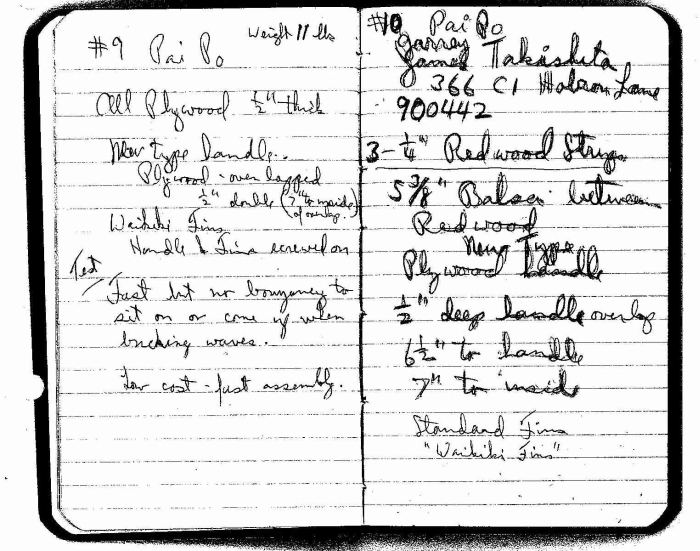 #9 Pai Po Weight 11 lbs
All Plywood 1/2" thick
New type handle..
Plywood - over lapped
1/2" double (7" to inside of overlap.)
Waikiki Fins
Handle & Fins screwed on
Test
Fast but no bouyancy to
sit on or come up when
bucking waves.
Low cost - fast assembly.
#10 Pai Po
Garrey
James Takashita
366 C1 Hobron Lane
900442
3 - 1/4" Redwood Strips
5 3/8" Balsa between
Redwood
New Type
Plywood handle
1/2" deep handle overlap
6 1/2" to handle
7" to inside
Standard Fins
"Waikiki Fins"